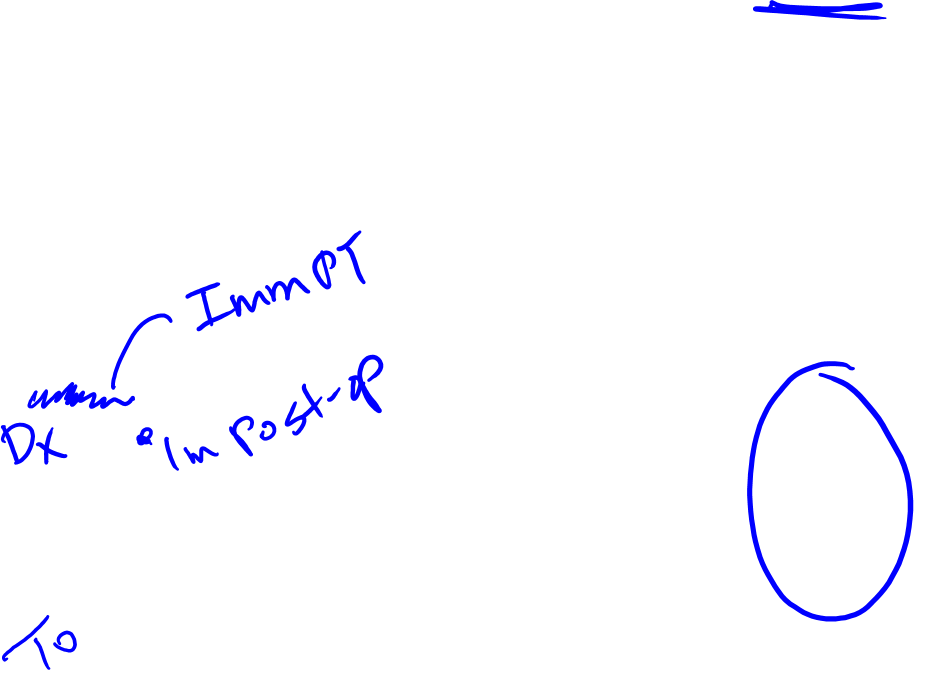 Imm PT
Dx im Post-P
To